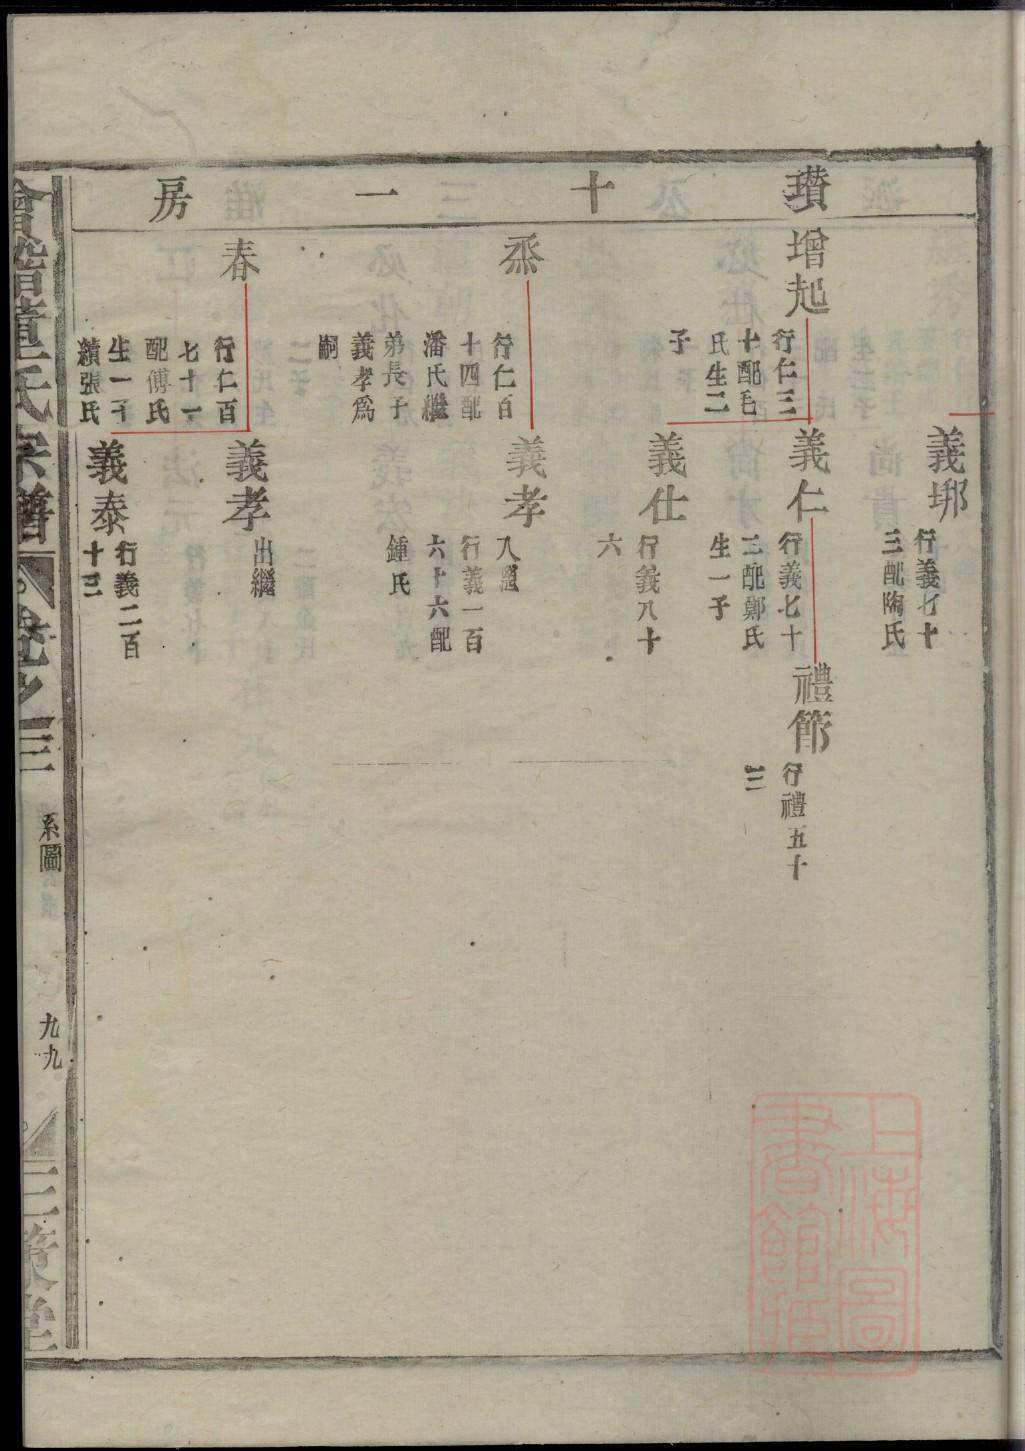 瓚十一房
義
行義七十
三配陶氏
增起
行仁三
十配毛
氏生二
子
義仁
行義七十
二配鄭氏
生一子
禮節
行禮五十
三
義仕
行義八十
六
烝
行仁百
十四配
潘氏繼
弟長子
義孝爲
嗣
義孝
入繼
行義一百
六十六配
鍾氏
春
行仁百
七十一
配傅氏
生一子
續張氏
義孝
出繼
義泰
行義二百
十三
會稽董氏宗譜
卷之三
系圖
九九
三策堂
上海圖
書館藏